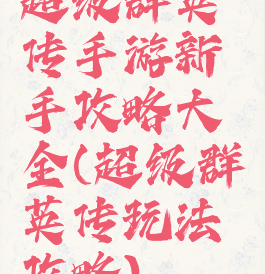 超级群英
传手游新
手攻略大
全(超级群
英传玩法
攻略)